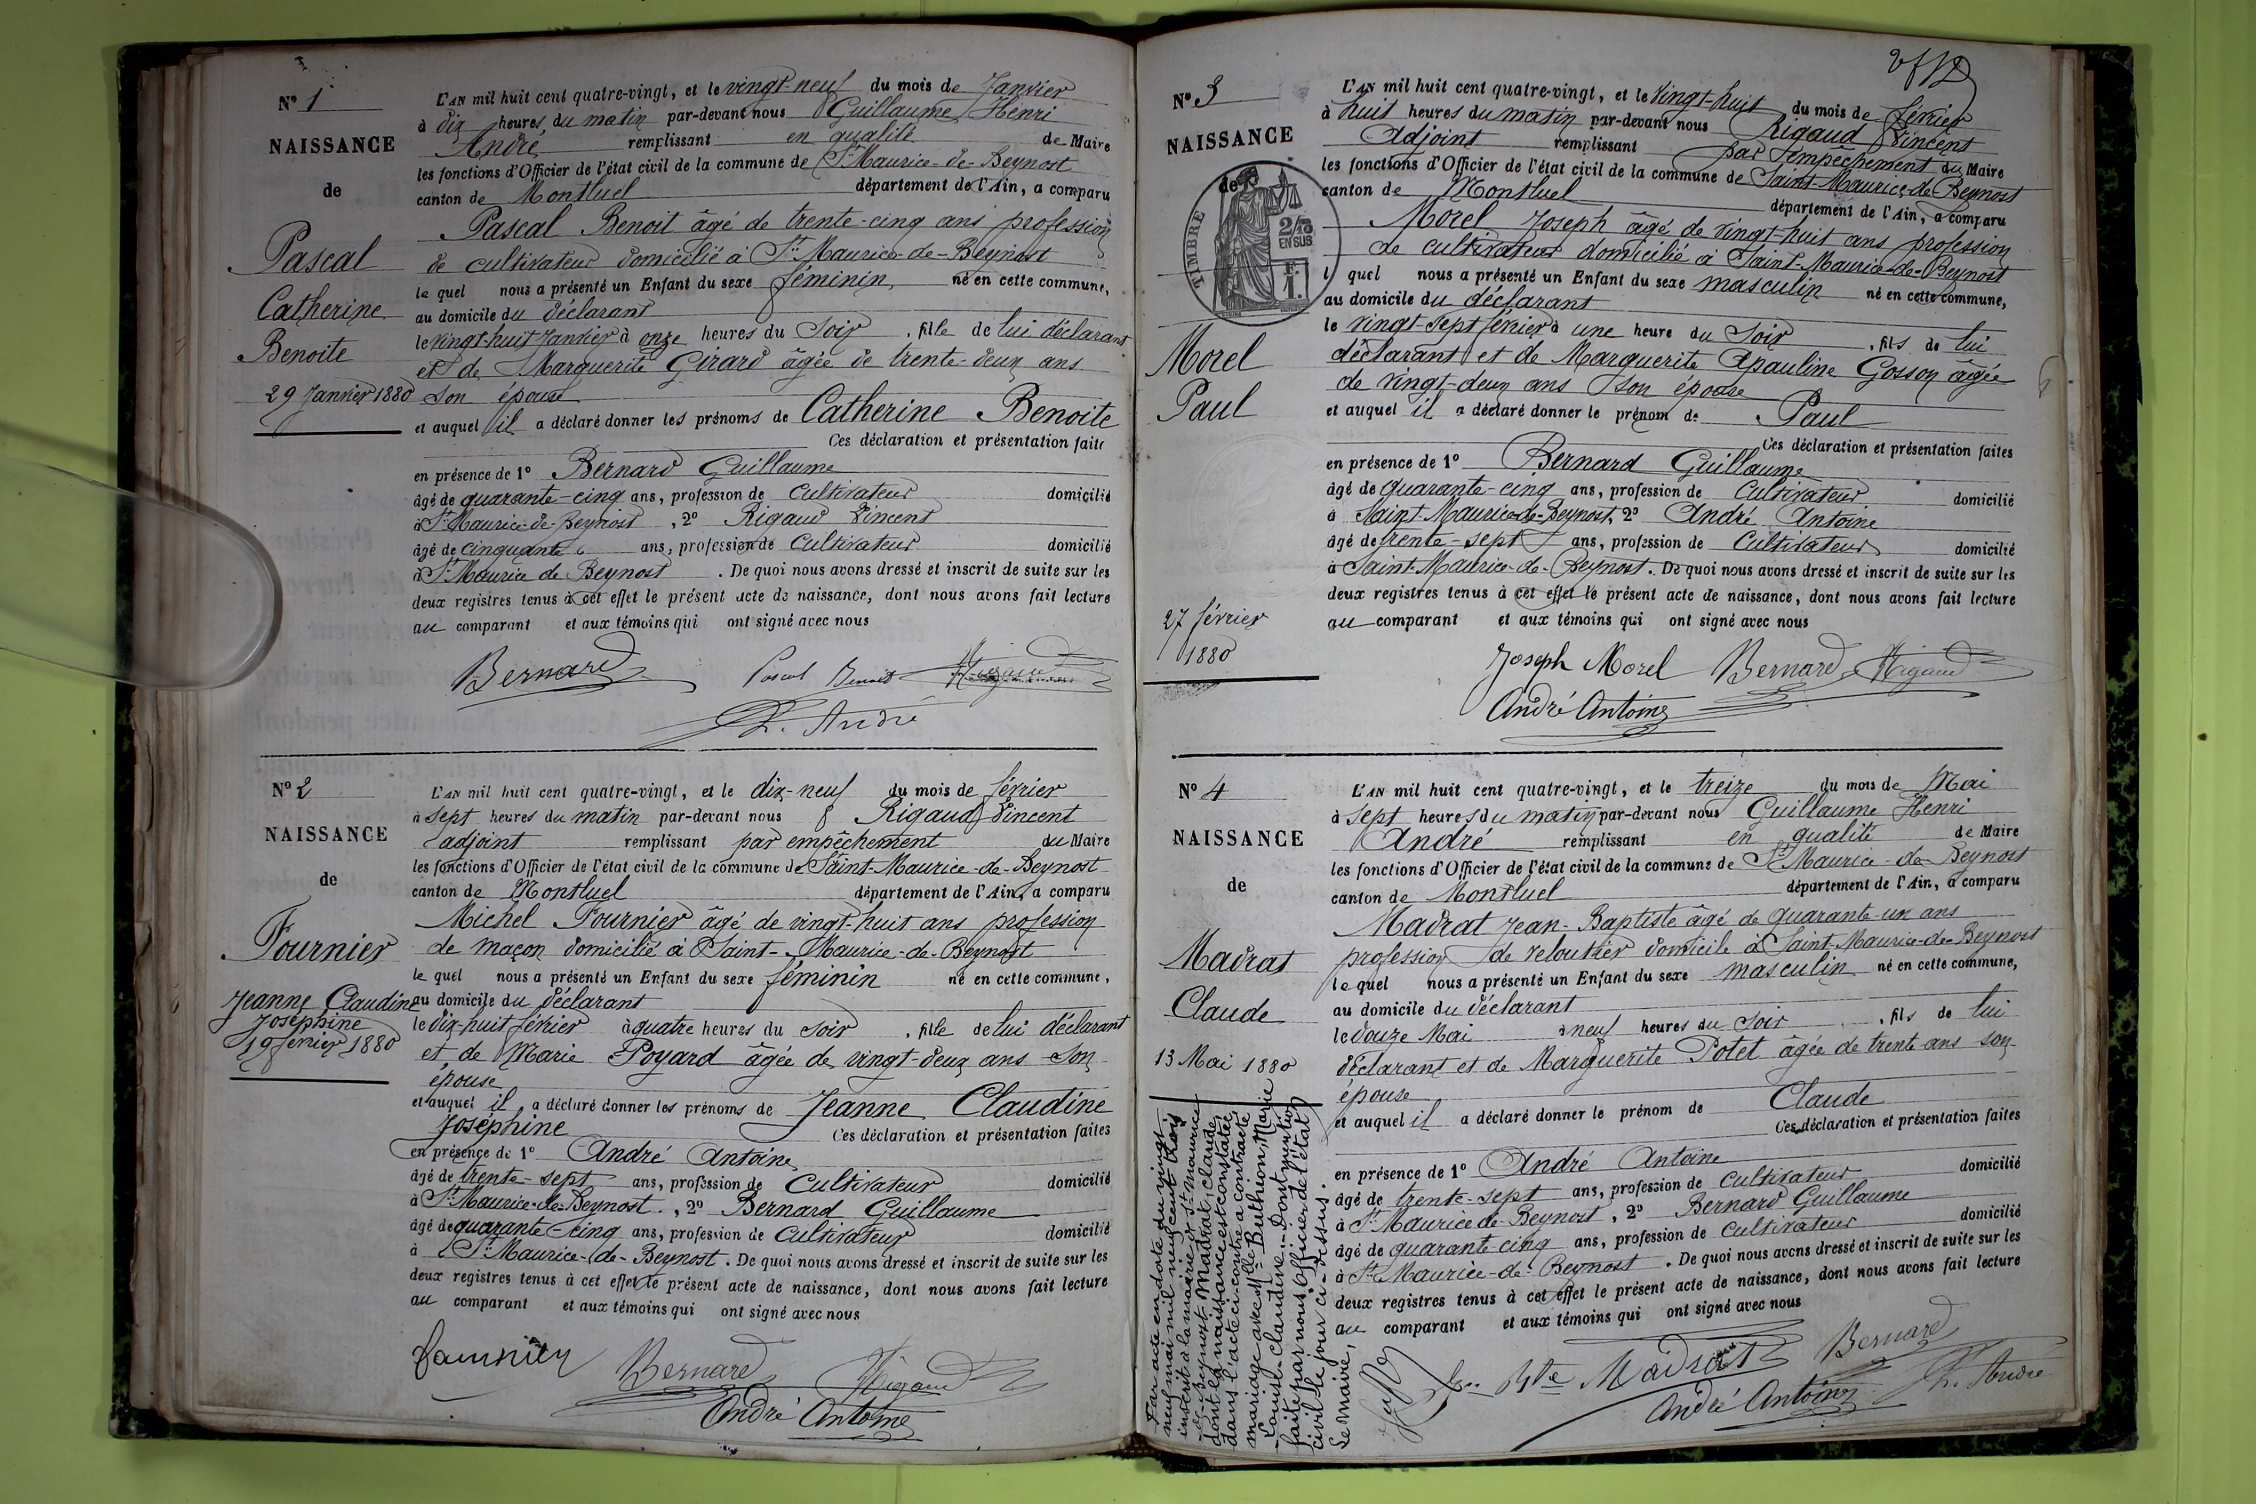 N° 1
NAISSANCE
de
Pascal
Catherine
Benoite
29 Janvier 1880
L'AN mil huit cent quatre-vingt, et le vingt-neuf du mois de Janvier
à dix heures, du matin par-devant nous Guillaume Henri
André remplissant en qualité de Maire
les fonctions d'Officier de l'état civil de la commune de St Maurice-de-Beynost
canton de Montluel département de l'Ain, a comparu
Pascal Benoit âgé de trente-cinq ans profession
de cultivateur domicilié à St Maurice-de-Beynost
le quel nous a présenté un Enfant du sexe féminin, né en cette commune,
au domicile du déclarant
le vingt-huit Janvier à onze heures du Soir , fille de lui déclarant
et de Marguerite Girard âgée de trente-deux ans
son épouse
et auquel il a déclaré donner les prénoms de Catherine Benoite
Ces déclaration et présentation faite
en présence de 1° Bernard Guillaume
âgé de quarante-cinq ans, profession de Cultivateur domicilié
à St Maurice-de-Beynost , 2° Rigaud Vincent
âgé de cinquante ans, profession de Cultivateur domicilié
à St Maurice de Beynost . De quoi nous avons dressé et inscrit de suite sur les
deux registres tenus à cet effet le présent acte de naissance, dont nous avons fait lecture
au comparant et aux témoins qui ont signé avec nous
Bernard Pascal Benoit Rigaud
h. André
N° 2
NAISSANCE
de
Fournier
Jeanne Claudine
Joséphine
19 février 1880
L'AN mil huit cent quatre-vingt, et le dix-neuf du mois de février
à sept heures du matin par-devant nous Rigaud Vincent
adjoint remplissant par empêchement du Maire
les fonctions d'Officier de l'état civil de la commune de Saint-Maurice-de-Beynost
canton de Montluel département de l'Ain, a comparu
Michel Fournier âgé de vingt-huit ans profession
de maçon domicilié à Saint-Maurice-de-Beynost
le quel nous a présenté un Enfant du sexe féminin né en cette commune,
au domicile du déclarant
le dix-huit février à quatre heures du soir , fille de lui déclarant
et de Marie Poyard âgée de vingt-deux ans son
épouse
et auquel il a déclaré donner les prénoms de Jeanne Claudine
Joséphine Ces déclaration et présentation faites
en présence de 1° André Antoine
âgé de trente-sept ans, profession de Cultivateur domicilié
à St Maurice-de-Beynost . , 2° Bernard Guillaume
âgé de quarante-cinq ans, profession de Cultivateur domicilié
à St Maurice-de-Beynost . De quoi nous avons dressé et inscrit de suite sur les
deux registres tenus à cet effet le présent acte de naissance, dont nous avons fait lecture
au comparant et aux témoins qui ont signé avec nous
Bernard Rigaud
André Antoine
N° 3
NAISSANCE
de
TIMBRE
2/10
EN SUS
F.
1.
Morel
Paul
27 février
1880
L'AN mil huit cent quatre-vingt, et le vingt-huit du mois de février
à huit heures du matin par-devant nous Rigaud Vincent
Adjoint remplissant par empêchement du Maire
les fonctions d'Officier de l'état civil de la commune de Saint-Maurice-de-Beynost
canton de Montluel département de l'Ain, a comparu
Morel Joseph âgé de vingt-huit ans profession
de cultivateur domicilié à Saint-Maurice-de-Beynost
l quel nous a présenté un Enfant du sexe masculin né en cette commune,
au domicile du déclarant
le vingt-sept février à une heure du Soir , fils de lui
déclarant et de Marguerite Gosson âgée
de vingt-deux ans son épouse
et auquel il a déclaré donner le prénom de Paul
Ces déclaration et présentation faites
en présence de 1° Bernard Guillaume
âgé de quarante-cinq ans, profession de Cultivateur domicilié
à Saint Maurice-de-Beynost, 2° André Antoine
âgé de trente-sept ans, profession de Cultivateur domicilié
à Saint-Maurice-de-Beynost . De quoi nous avons dressé et inscrit de suite sur les
deux registres tenus à cet effet le présent acte de naissance, dont nous avons fait lecture
au comparant et aux témoins qui ont signé avec nous
Joseph Morel Bernard Rigaud
André Antoine
N° 4
NAISSANCE
de
Madrat
Claude
13 Mai 1880
Par acte en date du vingt-
neuf mai mil neuf cent trois
inscrit à la mairie de St-Maurice
-de-Beynost Madrat, Claude,
dont la naissance est constatée
dans l'acte ci-contre a contracté
mariage avec Mlle Berthion, Marie
Louise Claudine. - Dont mention
faite par nous, Officier de l'état
civil le jour ci-dessus.
Le maire,
L'AN mil huit cent quatre-vingt, et le treize du mois de Mai
à sept heures du matin par-devant nous Guillaume Henri
André remplissant en qualité de Maire
les fonctions d'Officier de l'état civil de la commune de St Maurice-de-Beynost
canton de Montluel département de l'Ain, a comparu
Madrat Jean-Baptiste âgé de quarante-un ans
profession de veloutier domicilé à Saint-Maurice-de-Beynost
le quel nous a présenté un Enfant du sexe masculin né en cette commune,
au domicile du déclarant
le douze Mai à neuf heures du soir , fils de lui
déclarant et de Marguerite Potet âgée de trente ans son
épouse
et auquel il a déclaré donner le prénom de Claude
Ces déclaration et présentation faites
en présence de 1° André Antoine
âgé de trente-sept ans, profession de Cultivateur domicilié
à St Maurice de Beynost , 2° Bernard Guillaume
âgé de quarante cinq ans, profession de Cultivateur domicilié
à St Maurice-de-Beynost . De quoi nous avons dressé et inscrit de suite sur les
deux registres tenus à cet effet le présent acte de naissance, dont nous avons fait lecture
au comparant et aux témoins qui ont signé avec nous
Jn Bte Madrat Bernard
André Antoine h. André